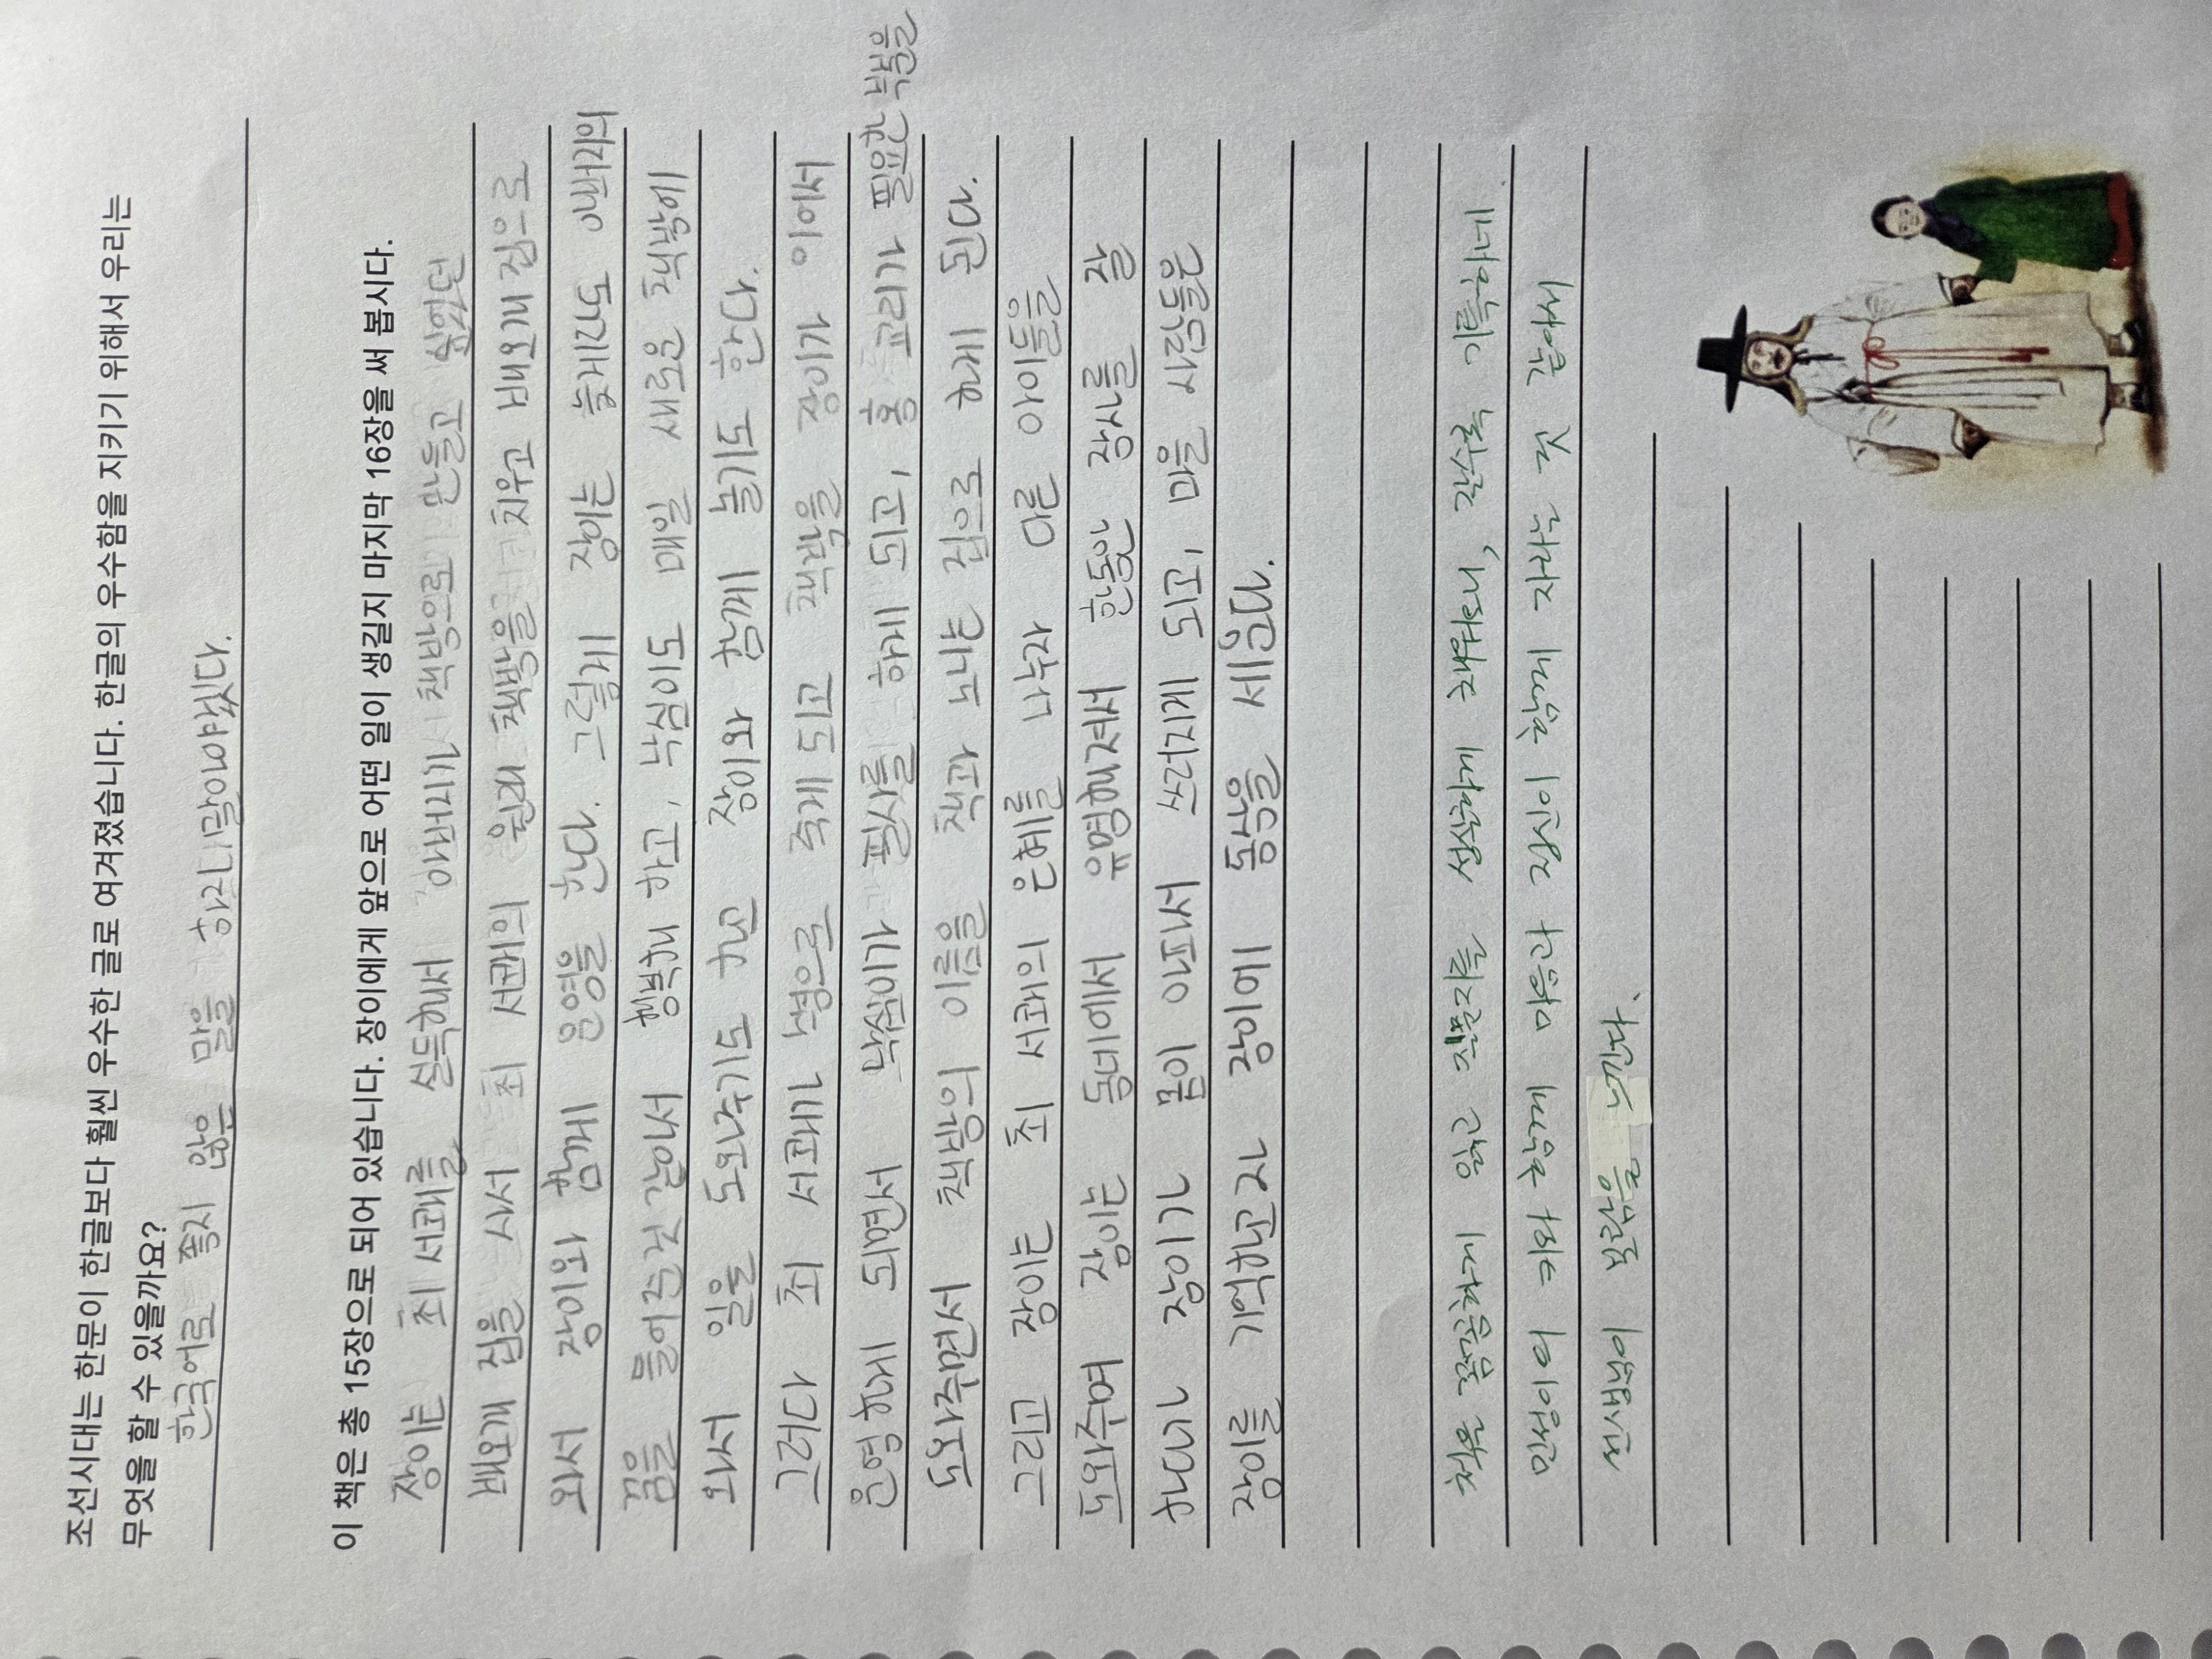 조선시대는 한문이 한글보다 훨씬 우수한 글로 여겨졌습니다. 한글의 우수함을 지키기 위해서 우리는
무엇을 할 수 있을까요?
한국어로 좋지 않은 말을 하지 말아야겠다.
이 책은 총 15장으로 되어 있습니다. 장이에게 앞으로 어떤 일이 생길지 마지막 16장을 써 봅시다.
장이는 최 서쾌를 설득해서 아버지가 책방으로 만들고 싶었던
배오개 집을 사서 최 서쾌의 원래 책방을 치우고 배오개 집으로
와서 장이와 함께 운영을 한다. 그렇게 장이는 늦게라도 아버지의
꿈을 들어준것 같아서 행복해 하고, 낙심이도 매일 새로운 책방에
와서 일을 도와주기도 하고 장이와 함께 놀기도 한다.
그러다 최 서쾌가 병으로 죽게 되고 책방을 장이가 이어서
운영하게 되면서 낙심이가 필사를 하게 되고, 홍 교리가 필요한 부분을
도와주면서 책방의 이름을 책과 노니는 집으로 하게 된다.
그리고 장이는 최 서쾌의 은혜를 나누자 다른 아이들을
도와주며 장이는 동네에서 유명해져서 한동안 장사를 잘
하다가 장이가 몸이 아파서 쓰러지게 되고, 마을 사람들은
장이를 기억하고자 장이에 동상을 세운다.
책을 꼼꼼하게 읽고 활동지를 성실하게 채워내니, 갈수록 기특하네
민성이의 노력과 함께 마음과 정신이 함께 자라는 것 같아서
선생님이 보람을 느낀다.